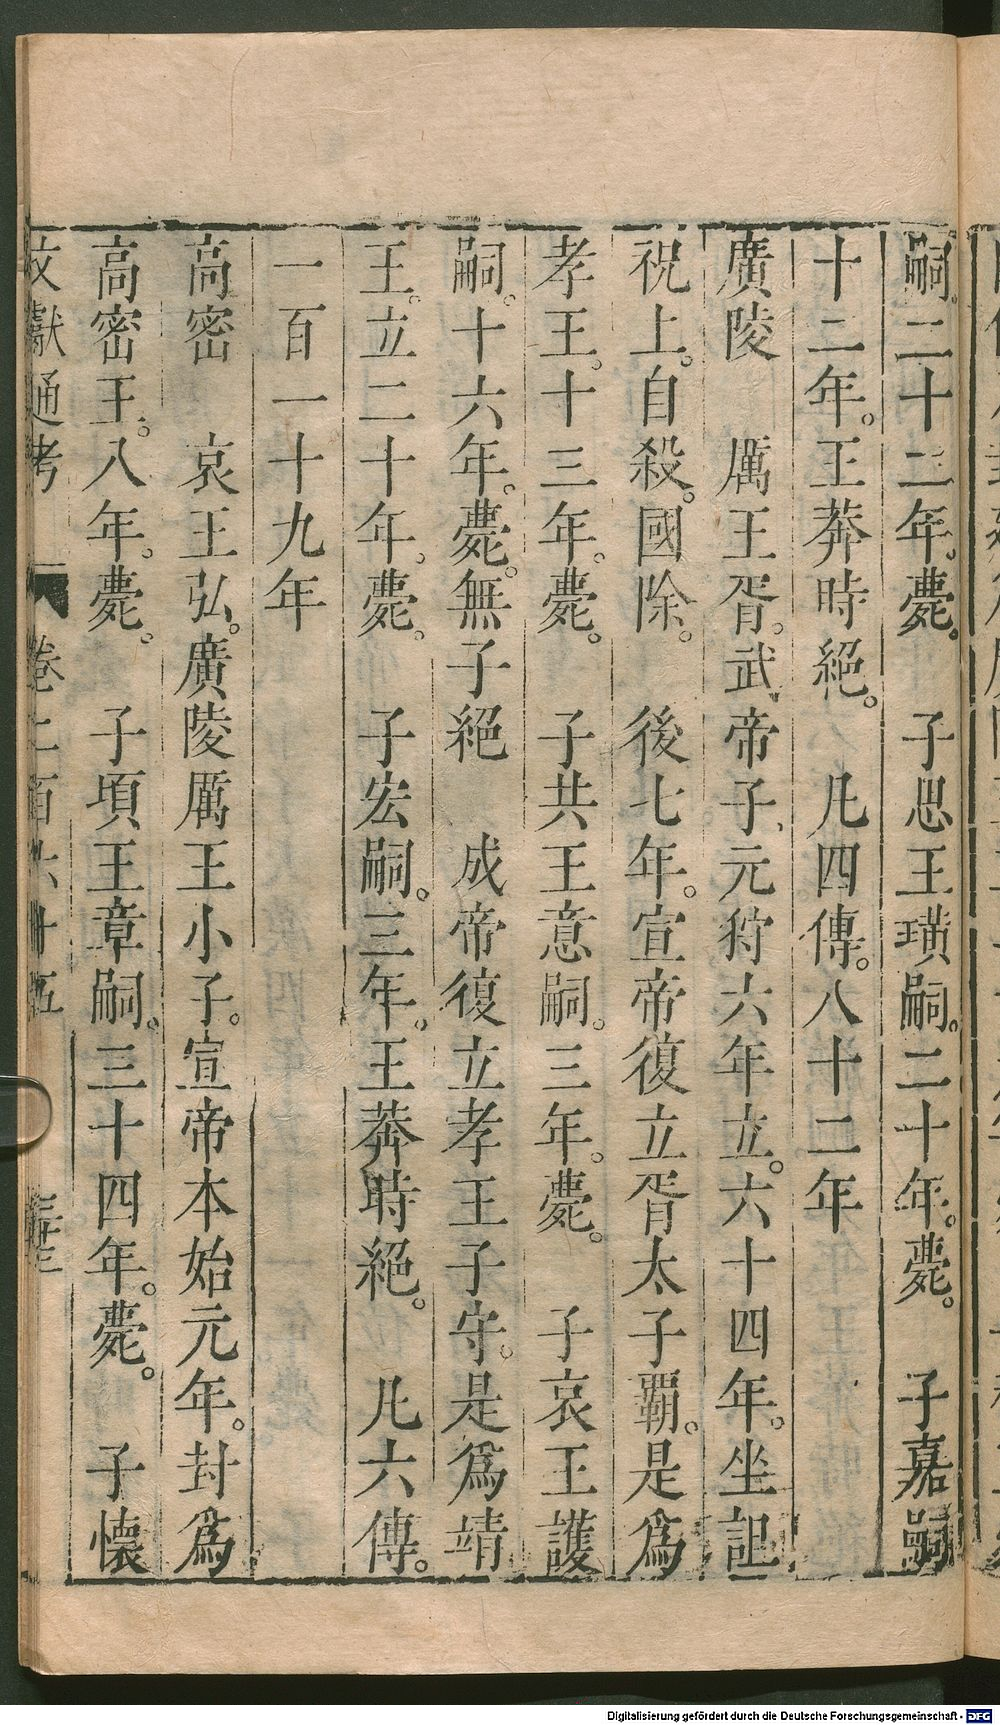 嗣。二十二年。薨。　子思王璜嗣。二十年。薨。　子嘉嗣
十二年。王莽時絕。　凡四傳。八十二年
廣陵　厲王胥。武帝子、元狩六年立。六十四年。坐詛
祝上。自殺。國除。　後七年。宣帝復立胥太子霸。是爲
孝王。十三年。薨。　子共王意嗣。三年。薨。　子哀王護
嗣。十六年。薨。無子絕　成帝復立孝王子守。是爲靖
王。立二十年。薨。　子宏嗣。三年。王莽時絕。　凡六傳。
一百一十九年
高密　哀王弘。廣陵厲王小子。宣帝本始元年。封爲
高密王。八年。薨。　子頃王章嗣。三十四年。薨。　子懷
文獻通考　卷二百六十五
Digitalisierung gefördert durch die Deutsche Forschungsgemeinschaft - DFG